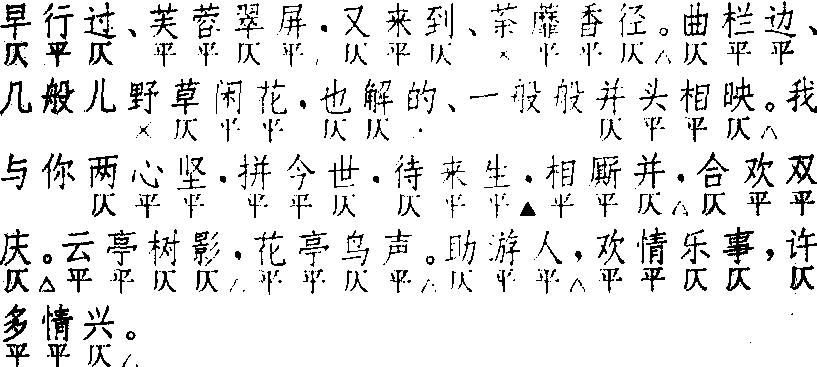 早行过、芙蓉翠屏，又来到、荼蘼香径。曲栏边、
仄平仄 平平仄平，仄平仄 ×平平仄△仄平平
几般儿野草闲花，也解的、一般般并头相映。我
×仄平平 仄仄 仄平平仄△
与你两心坚，拼今世，待来生，相厮并，合欢双
仄平平 平平仄 仄平平▲平平仄△仄平平
庆。云亭树影，花亭鸟声。助游人，欢情乐事，许
仄△平平仄仄△平平仄平△仄平平△平平仄仄 仄
多情兴。
平平仄△